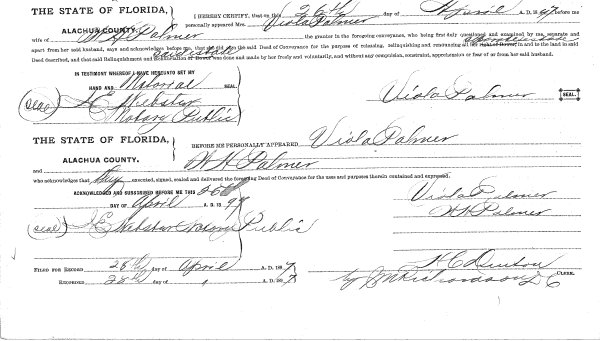 THE STATE OF FLORIDA,
ALACHUA COUNTY.
I HEREBY CERTIFY, that on this 26th day of April A. D. 1897 before me
personally appeared Mrs. Viola Palmer
wife of W H Palmer the grantor in the foregoing conveyance, who being first duly examined by me, separate and
apart from her said husband, says and acknowledges before me, that she did join the said Deed of Conveyance for the purpose of releasing, relinquishing and renouncing all her right of Dower, in and to the land in said
Deed described, and that said Relinquishment and Renunciation of Dower was done and made by her freely and voluntarily, and without any compulsion, constraint, apprehension or fear of or from her said husband.
IN TESTIMONY WHEREOF I HAVE HEREUNTO SET MY
HAND AND Notarial SEAL.
(seal) L E Webster
Notary Public
Viola Palmer SEAL.
THE STATE OF FLORIDA,
ALACHUA COUNTY.
BEFORE ME PERSONALLY APPEARED Viola Palmer
and W H Palmer
who acknowledges that they executed, signed, sealed and delivered the foregoing Deed of Conveyance for the uses and purposes therein contained and expressed.
ACKNOWLEDGED AND SUBSCRIBED BEFORE ME THIS 26th
DAY OF April A. D. 1897
Viola Palmer
W H Palmer
(seal) L E Webster Notary Public
FILED FOR RECORD 28th day of April A. D. 1897
RECORDED 28th day of " A. D. 1897
H C Denton CLERK.
by J M Richardson D C